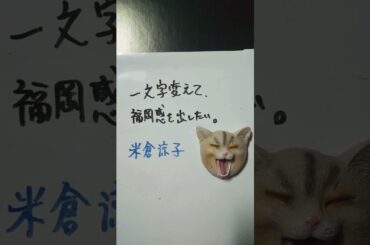 一文字変えて、
福岡感を出したい。
米倉涼子